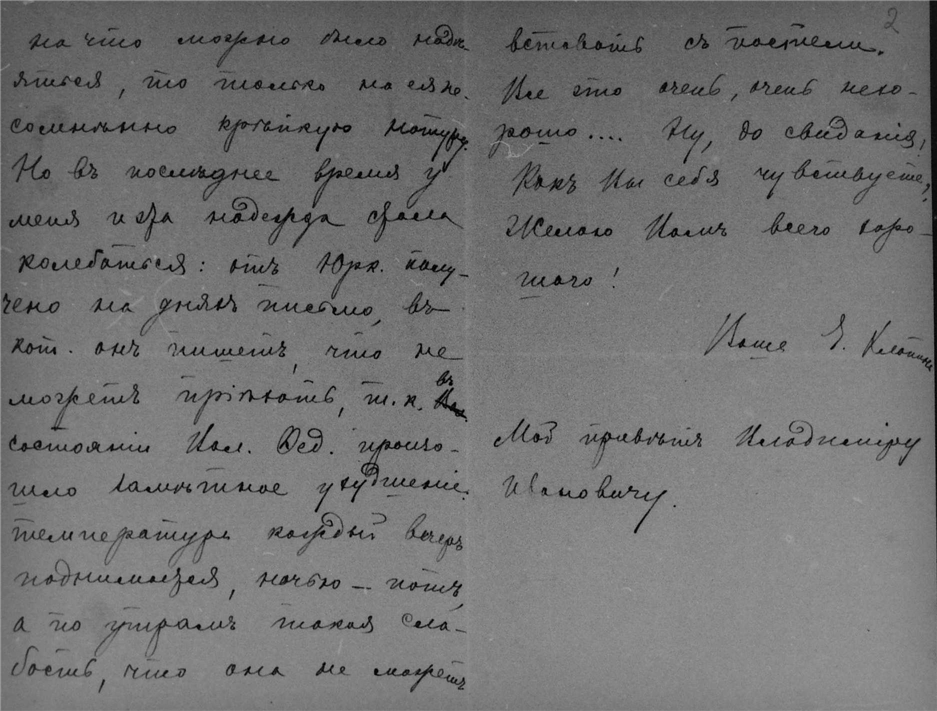 на что можно было надѣ-
яться, то только на ея не-
сомнѣнно крѣпкую натуру.
Но въ послѣднее время у
меня и эта надежда стала
колебаться: отъ Юрк. полу-
чено на дняхъ письмо, въ
кот. онъ пишетъ, что не
можетъ пріѣхать, т.к. въ
состояніи Вал. Ѳед. произо-
шло замѣтное ухудшеніе.
температура каждый вечеръ
поднимается, ночью – потъ,
а по утрамъ такая сла-
бость, что она не можетъ
2
вставать съ постели.
Все это очень, очень нехо-
рошо.... Ну, до свиданія!
Какъ Вы себя чувствуете?
Желаю Вамъ всего хоро-
шаго!
Ваше Е.
Мой привѣтъ Владиміру
Ивановичу.